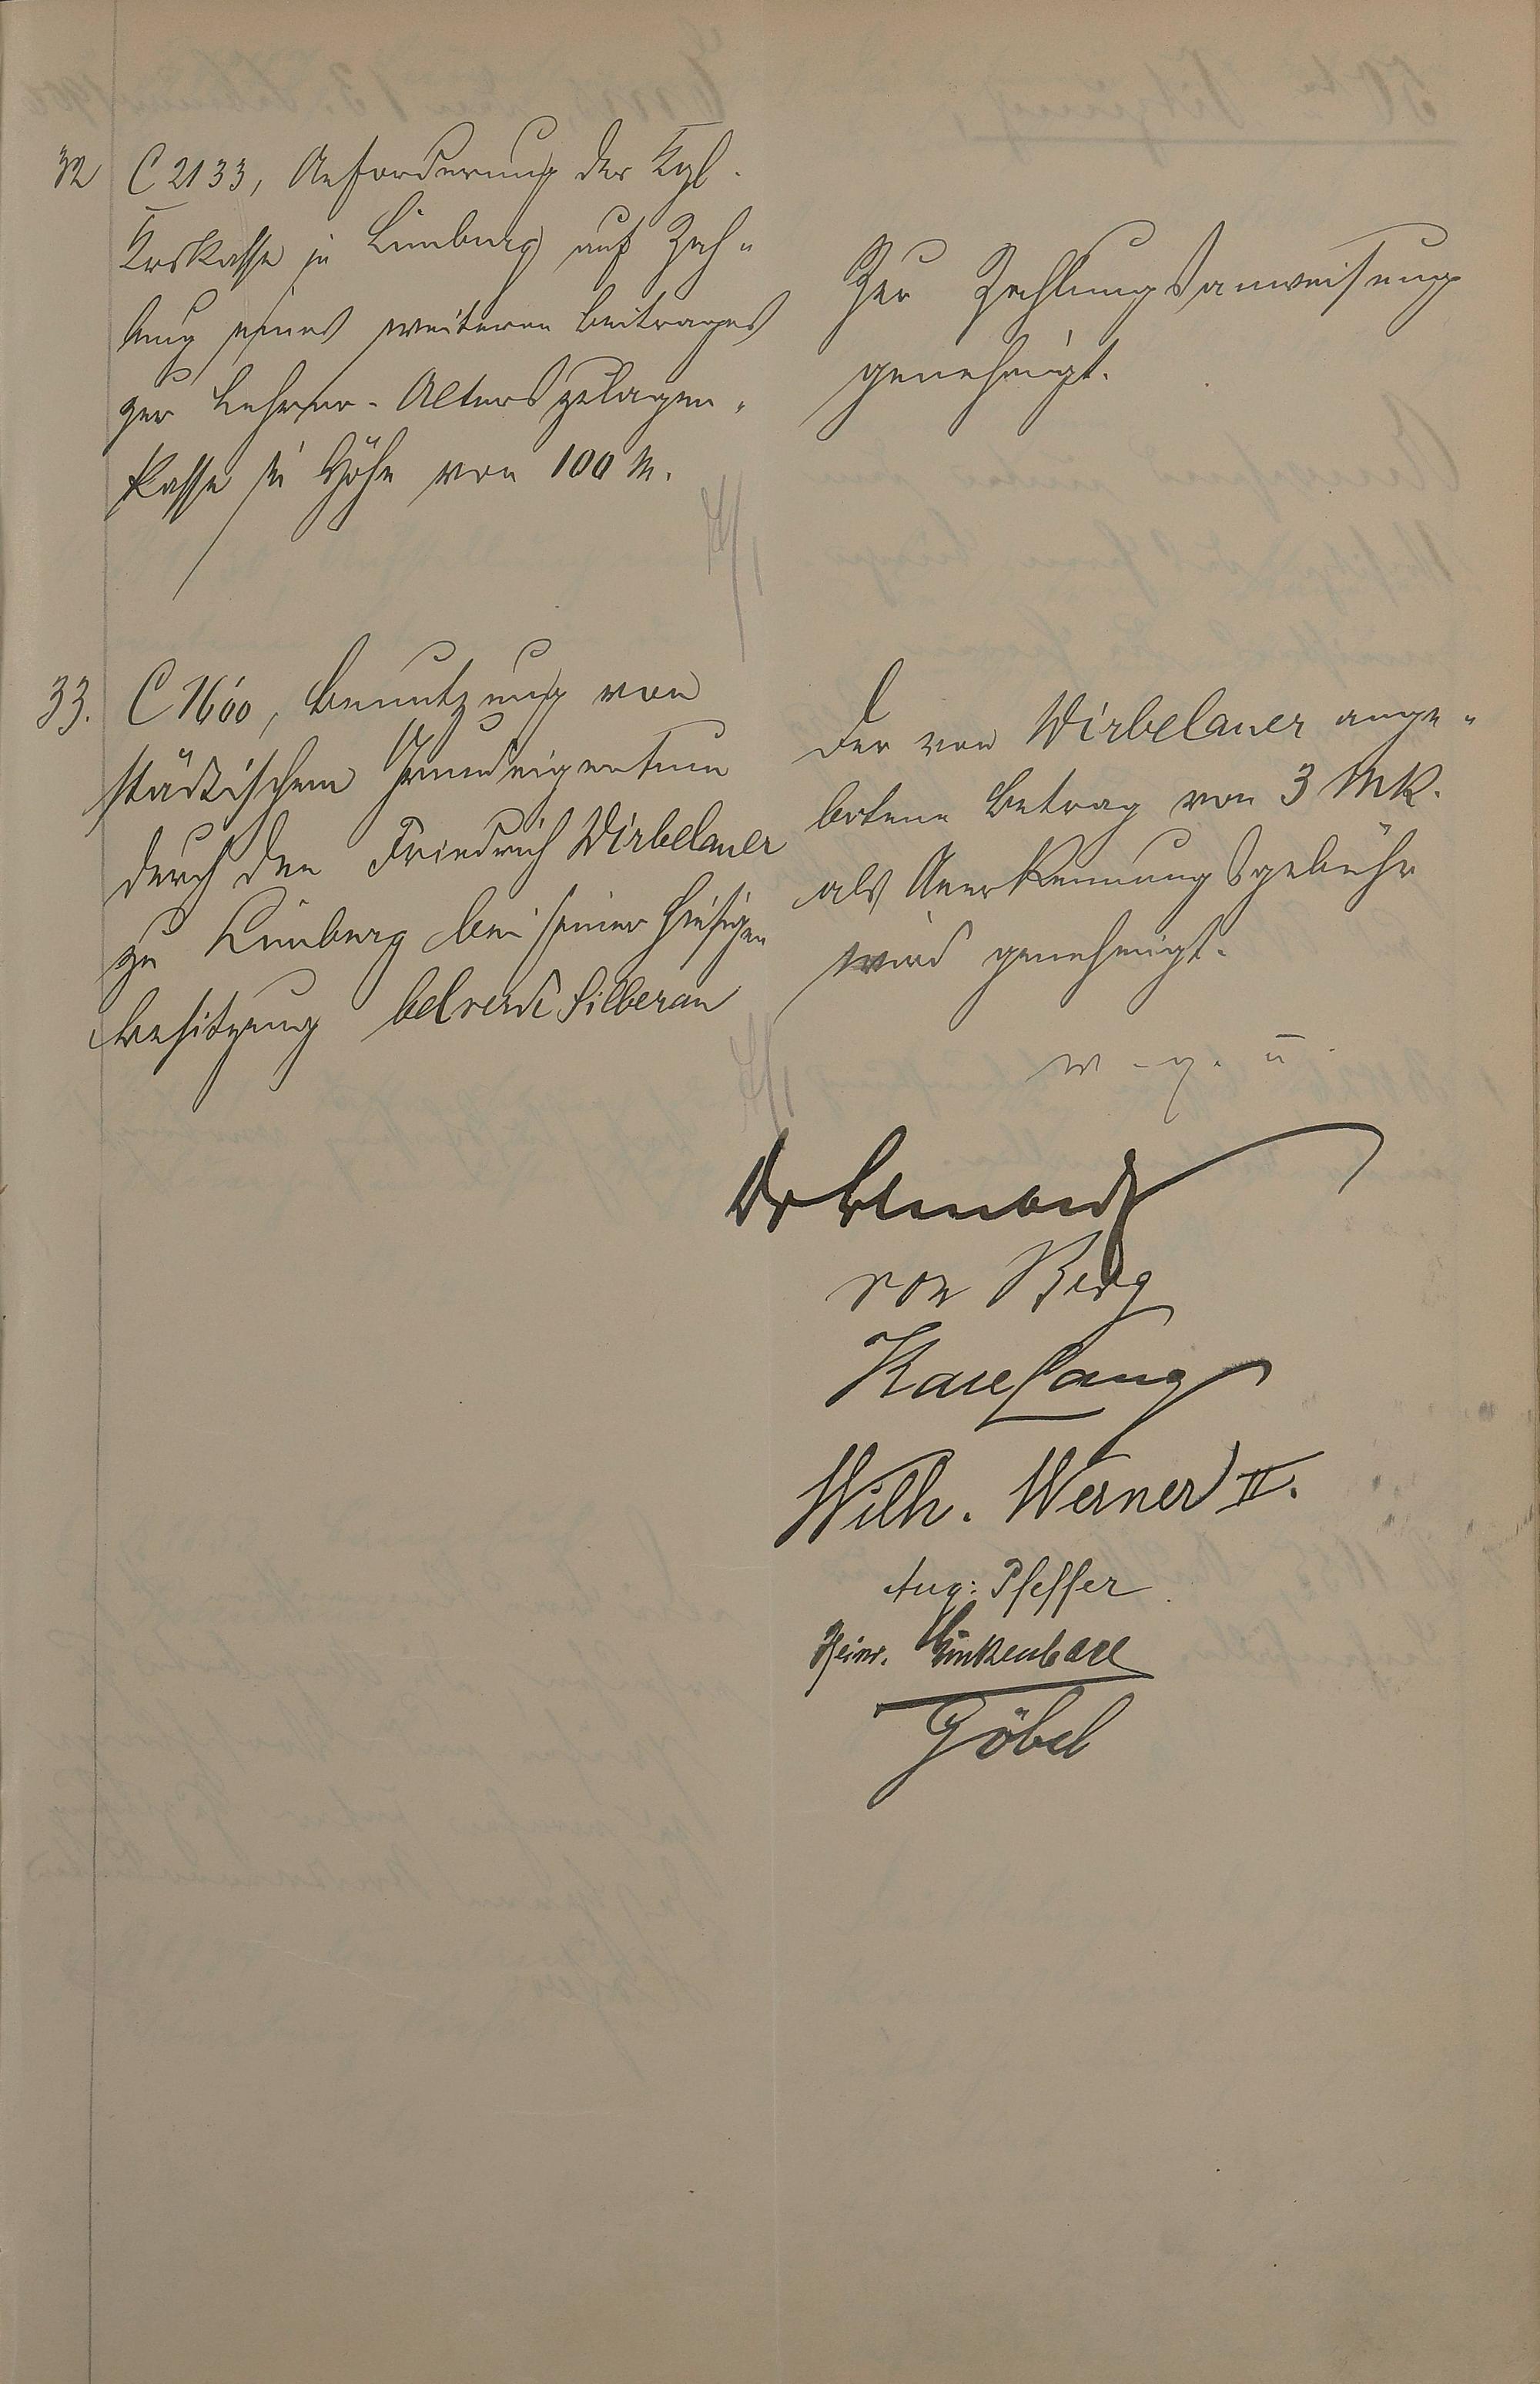 32 C 2133, Anforderung der Kgl.
Krskasse in Limburg auf Zah-
lung eines weiteren Beitrages
zur Lehrer-Alterszulagen-
kasse in Höhe von 100 M.
Zur Zahlungsanweisung
genehmigt.
33. C 1600, Benutzung von
städtischem Grundeigentum
durch den Friedrich Wirbelauer
zu Limburg bei seiner hiesigen
Besitzung Silberau
Der von Wirbelauer ange-
botene Betrag von 3 Mk.
als Anerkennungsgebühr
wird genehmigt.
v. g. u.
Dr
von Berg
Karl Lang
Wilh. Werner II.
Aug: Pfeffer
Heinr. Linkenbach
Göbel